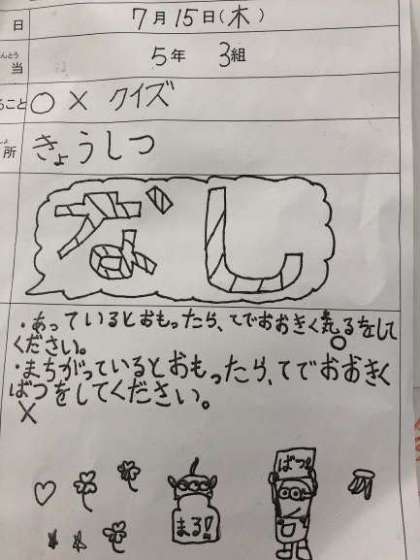 日 7月15日(木)
んとう
当 5年 3組
ること ○ × クイズ
しょ
所 きょうしつ
なし
・あっているとおもったら、てでおおきく まるをして
○
ください。
・まちがっているとおもったら、てでおおきく
ばつをしてください。
×
ばつ!
まる!